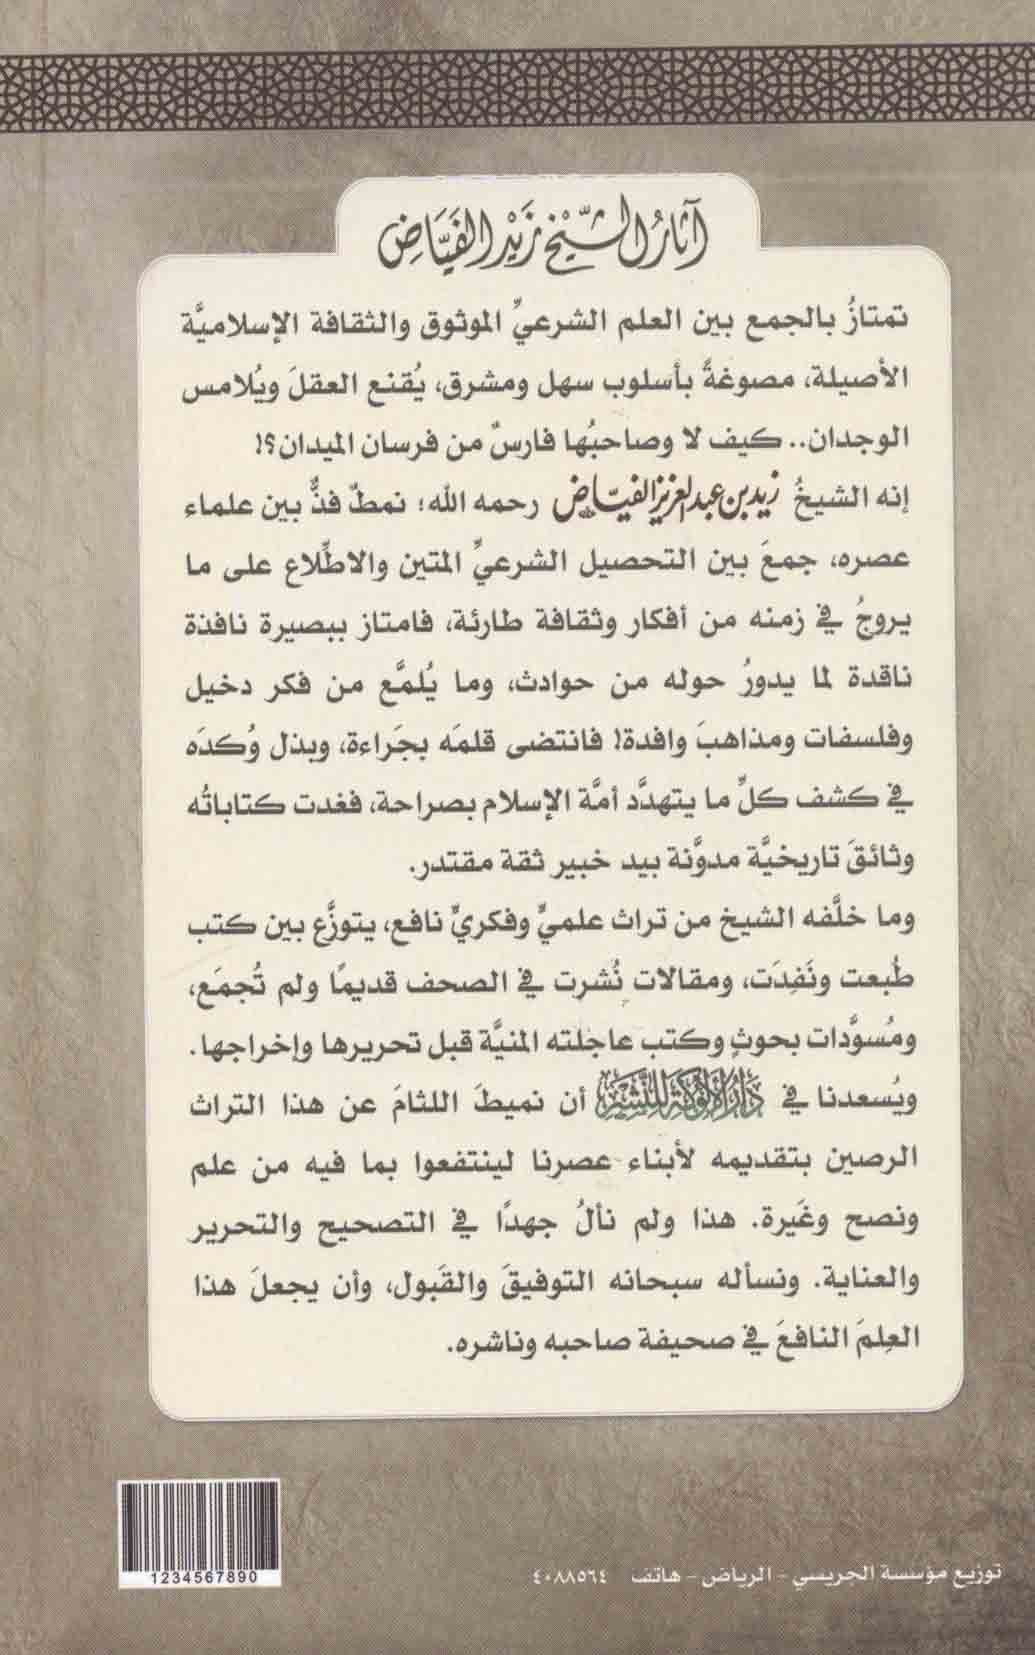 آثَارُ الشَّيْخ زَيْد الفَيَّاضِ
تمتازُ بالجمع بين العلم الشرعيِّ الموثوق والثقافة الإسلاميَّة
الأصيلة، مصوغةً بأسلوب سهل ومشرق، يُقنع العقلَ ويُلامس
الوجدان.. كيف لا وصاحبُها فارسٌ من فرسان الميدان؟!
إنه الشيخُ زيد بن عبد العزيز الفيَّاض رحمه الله؛ نمطٌ فذٌّ بين علماء
عصره، جمعَ بين التحصيل الشرعيِّ المتين والاطِّلاع على ما
يروجُ في زمنه من أفكار وثقافة طارئة، فامتاز ببصيرة نافذة
ناقدة لما يدورُ حوله من حوادث، وما يُلمَّع من فكر دخيل
وفلسفات ومذاهبَ وافدة! فانتضى قلمَه بجَراءة، وبذل وُكدَه
في كشف كلِّ ما يتهدَّد أمَّة الإسلام بصراحة، فغدت كتاباتُه
وثائقَ تاريخيَّة مدوَّنة بيد خبير ثقة مقتدر.
وما خلَّفه الشيخ من تراث علميٍّ وفكريٍّ نافع، يتوزَّع بين كتب
طُبعت ونَفِدَت، ومقالات نُشرت في الصحف قديمًا ولم تُجمَع،
ومُسوَّدات بحوثٍ وكتب عاجلته المنيَّة قبل تحريرها وإخراجها.
ويُسعدنا في دَارُ الأَلُوكَةِ لِلنَّشْرِ أن نميطَ اللثامَ عن هذا التراث
الرصين بتقديمه لأبناء عصرنا لينتفعوا بما فيه من علم
ونصح وغَيرة. هذا ولم نألُ جهدًا في التصحيح والتحرير
والعناية. ونسأله سبحانه التوفيقَ والقَبول، وأن يجعلَ هذا
العِلمَ النافعَ في صحيفة صاحبه وناشره.
توزيع مؤسسة الجريسي - الرياض - هاتف ٤٠٨٨٥٦٤
1234567890